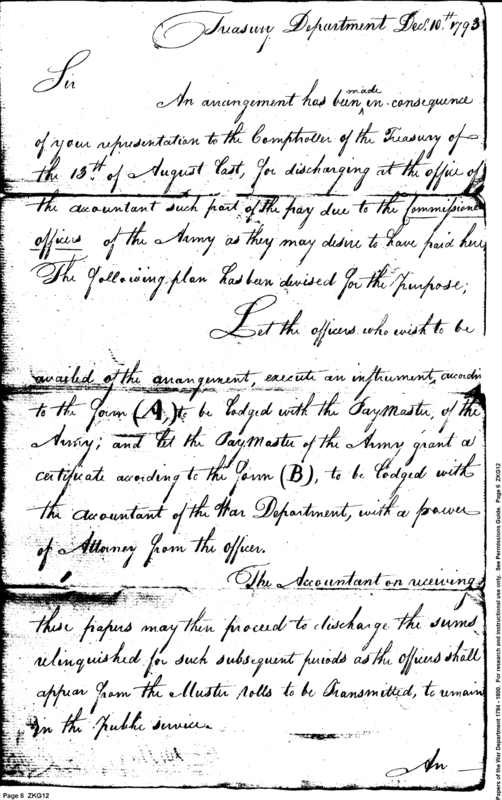 Treasury Department Decr. 10th. 1793
Sir
An arrangement has been made in consequence
of your representation to the Comptroller of the Treasury of
the 13th. of August last, for discharging at the office of
the accountant such part of the pay due to the Commissione
officers of the Army as they may desire to have paid here
The following plan has been devised for the Purpose;
Let the officers who wish to be
availed of the arrangement, execute an instrument, accordi
to the form (A,) to be lodged with the PayMaster, of the
Army; and let the PayMaster of the Army grant a
certificate according to the form (B), to be lodged with
the accountant of the War Department, with a power
of Attorney from the officer.
The Accountant on receiving
these papers may then proceed to discharge the sums
relinquished for such subsequent periods as the officers shall
appear from the Muster rolls to be Transmitted, to remain
in the Public service.
An
Page 6 ZKG12
Papers of the War Department 1784 - 1800. For research and instructional use only. See Permissions Guide. Page 6 ZKG12